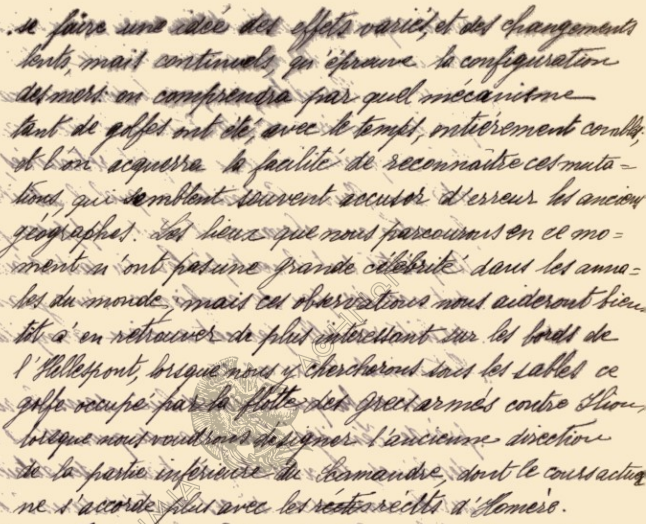 se faire une idée des effets variés, et des changements
lents, mais continuels, qu'éprouve la configuration
des mers. on comprendra par quel mécanisme
tant de golfes ont été, avec le temps, entièrement comblés,
et l'on acquerra la facilité de reconnaître ces muta=
tions, qui semblent souvent accuser d'erreur les anciens
géographes. Les lieux que nous parcourons en ce mo=
ment n'ont pas une grande célébrité dans les anna=
les du monde, mais ces observations nous aideront bien
tôt à en retrouver de plus intéressant sur les bords de
l'Hellespont, lorsque nous y chercherons sous les sables ce
golfe occupé par la flotte des grecs armés contre Ilion,
lorsque nous voudrons désigner l'ancienne direction
de la partie inférieure du Scamandre, dont le cours actuel
ne s'accorde plus avec les récits d'Homère.